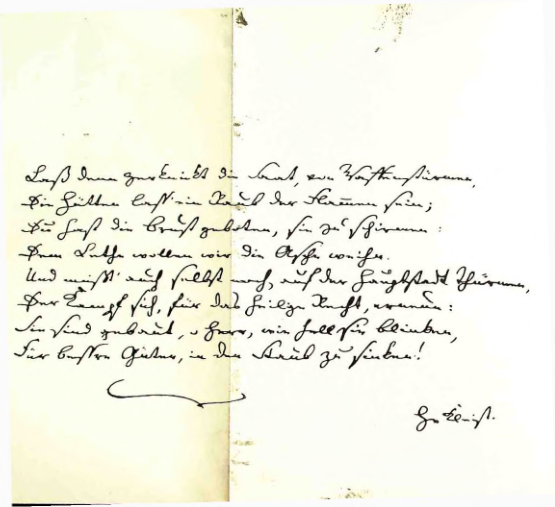 Laß denn zerknickt die Saat, von Waffenstürmen,
Die Hütten laß ein Raub der Flammen sein;
Du hast die Brust geboten, sie zu schirmen:
Dem Lethe wollen wir die Asche weihn.
Und müßt' auch selbst noch, auf der Hauptstadt Thürmen,
Der Kampf sich, für das heilge Recht, erneun:
Sie sind gebaut, o Herr, wie hell sie blinken,
Für beßre Güter, in den Staub zu sinken!
H v Kleist.